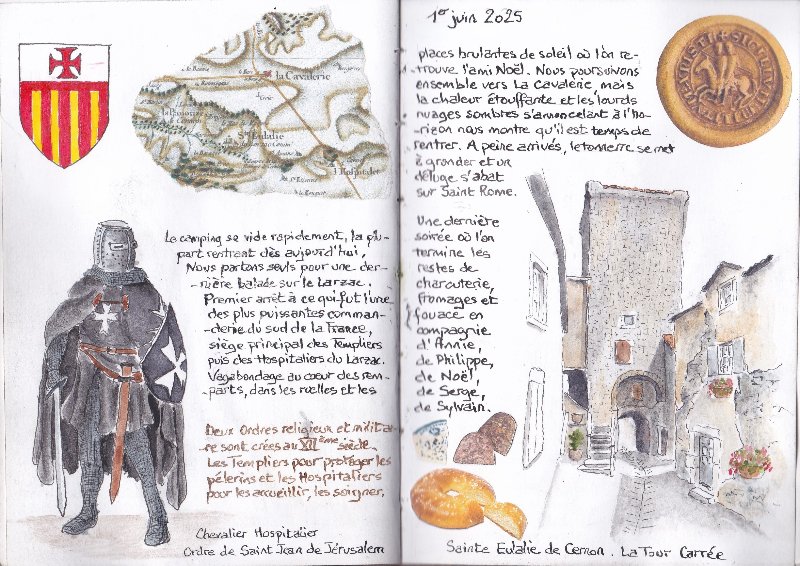 la Cavalerie
Ste Eulalie
l'Hospitalet
Le camping se vide rapidement, la plu-
part rentrant dès aujourd'hui,
Nous partons seuls pour une der-
-nière balade sur le Larzac.
Premier arrêt à ce qui fut l'une
des plus puissantes comman-
-derie du sud de la France,
siège principal des Templiers
puis des Hospitaliers du Larzac.
Vagabondage au coeur des rem-
-parts, dans les ruelles et les
Deux Ordres religieux et militai-
re sont crées au XIIème siècle.
Les Templiers pour protéger les
pélerins et les Hospitaliers
pour les accueillir, les soigner.
Chevalier Hospitalier
Ordre de Saint Jean de Jérusalem
1er juin 2025
places brulantes de soleil où l'on re-
-trouve l'ami Noël. Nous poursuivons
ensemble vers La Cavalerie, mais
la chaleur étouffante et les lourds
nuages sombres s'amoncelant à l'ho-
-rizon nous montre qu'il est temps de
rentrer. A peine arrivés, le tonnerre se met
à gronder et un
déluge s'abat
sur Saint Rome.
Une dernière
soirée où l'on
termine les
restes de
charcuterie,
fromages et
fouace en
compagnie
d'Annie,
de Philippe,
de Noël,
de Serge,
de Sylvain.
Sainte Eulalie de Cernon. La Tour Carrée